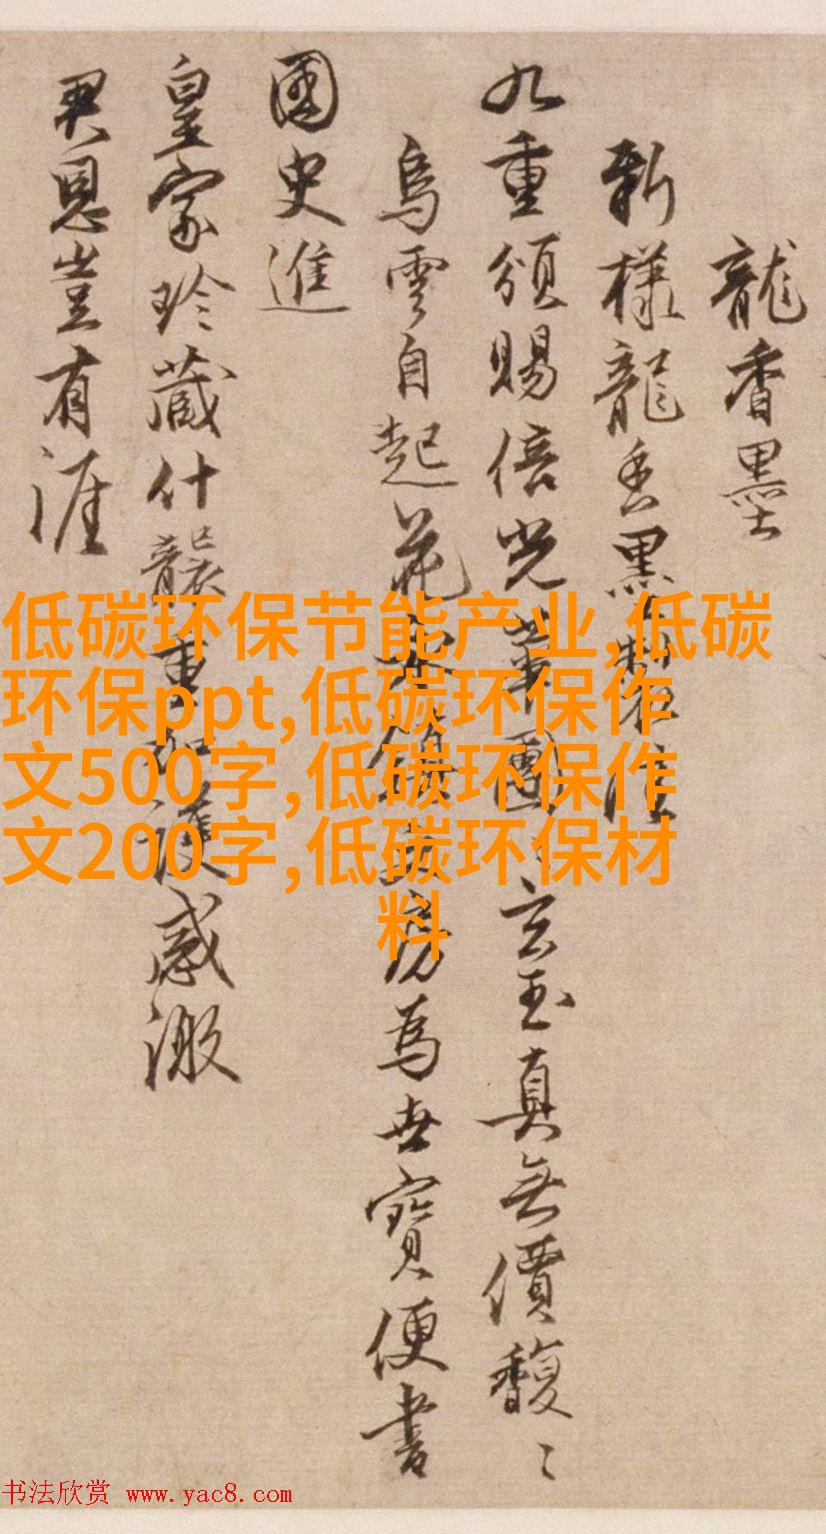 龍香墨
新樣龍香墨製
九重頒賜倍光華團〻玄玉真無價馥〻
烏雲自起花
房為世寶便書
國史進
皇家珍藏什襲重
護感激
君恩豈有涯
低碳环保节能产业,低碳
环保ppt,低碳环保作
文500字,低碳环保作
文200字,低碳环保材
料
书法欣赏 www.yac8.com